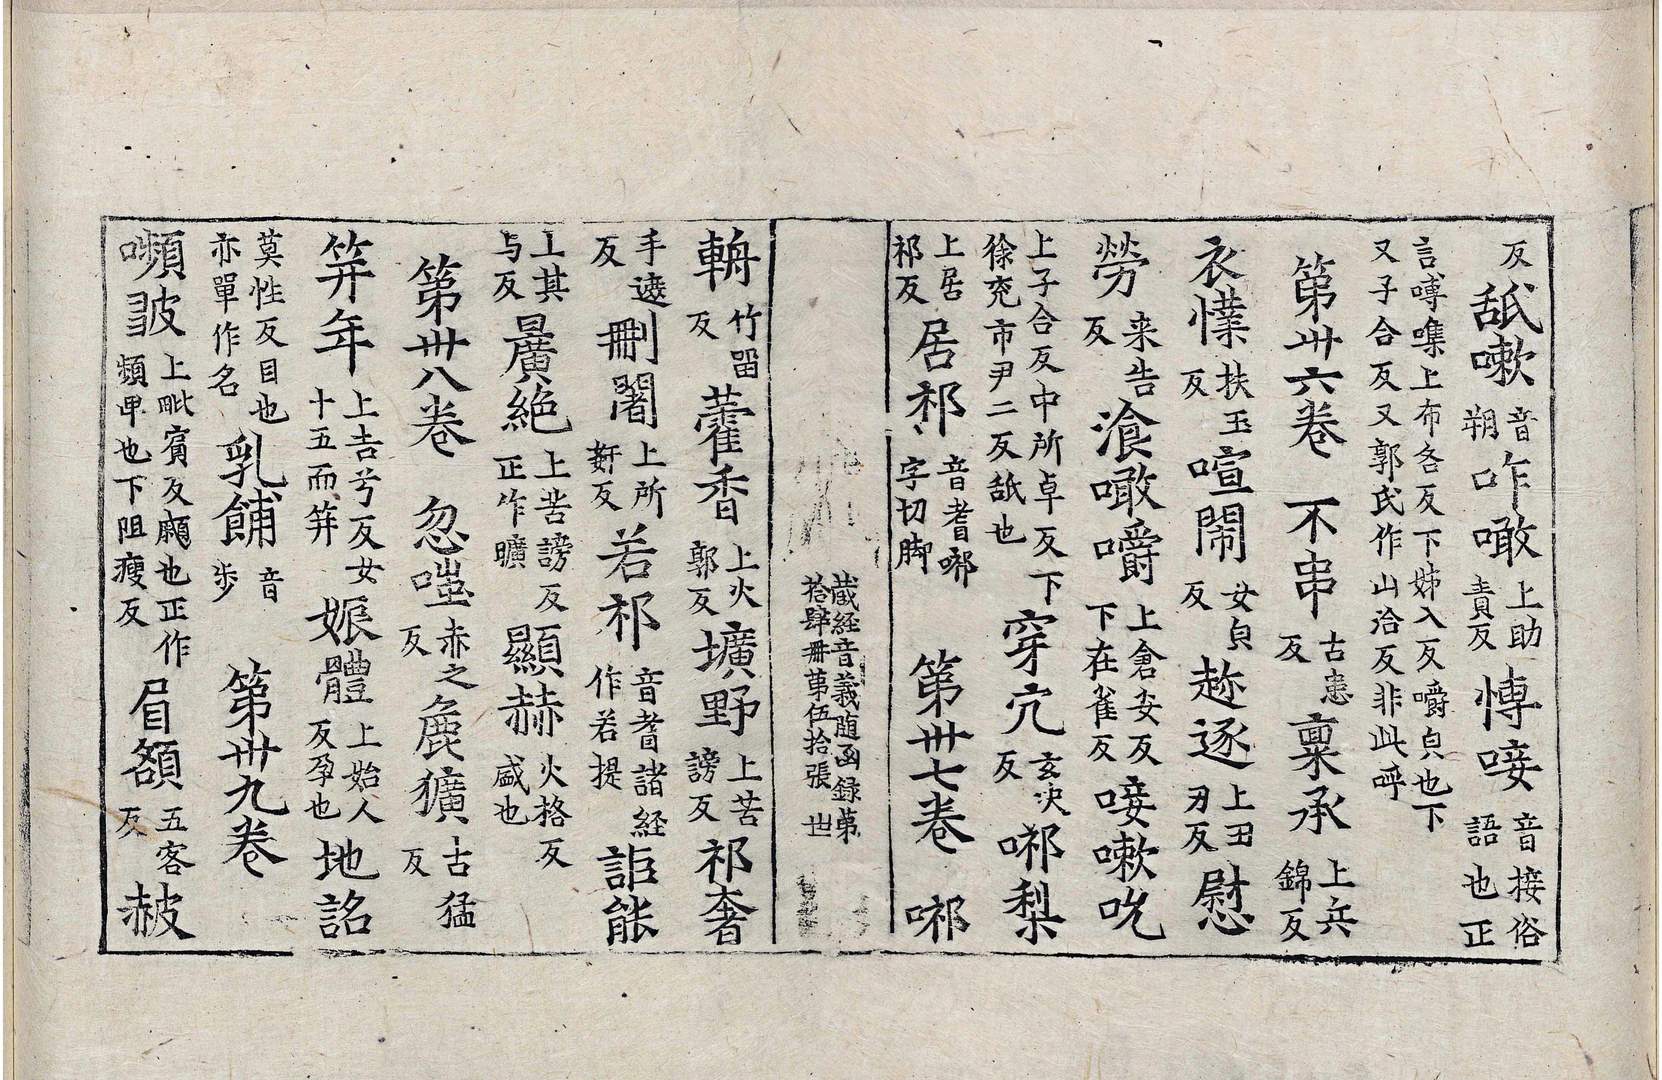 反舐嗽音朔咋噉上助責反愽唼音接俗語也正
言嚩噍上布各反下姊入反嚼皃也下又子合反又郭氏作山洽反非此呼
第卅六卷 不串古患反稟承上兵錦反
衣㦨扶玉反喧鬧女皃反趂逐上丑刃反慰
勞来告反飡噉嚼上倉安反下在雀反唼嗽吮
上子合反中所卓反下徐兖市尹二反舐也穿穴玄决反㖿梨
上居祁反居祁音耆㖿字切脚 第卅七卷 㖿
藏経音義随函録第拾肆册第伍拾張 世
輈竹留反藿香上火郭反壙野上苦謗反祁奢
手遠反刪闍上所姧反若祁音耆諸経作若提詎能
上其与反曠絶上苦謗反正作曠顯赫火格反盛也
第卅八卷 忽嗤赤之反麁獷古猛反
笄年上吉兮反女十五而笄娠體上始人反孕也地詺
莫性反目也亦單作名乳餔音步 第卅九卷
嚬皺上毗賓反顣也正作頻卑也下阻瘦反眉額五客反赧